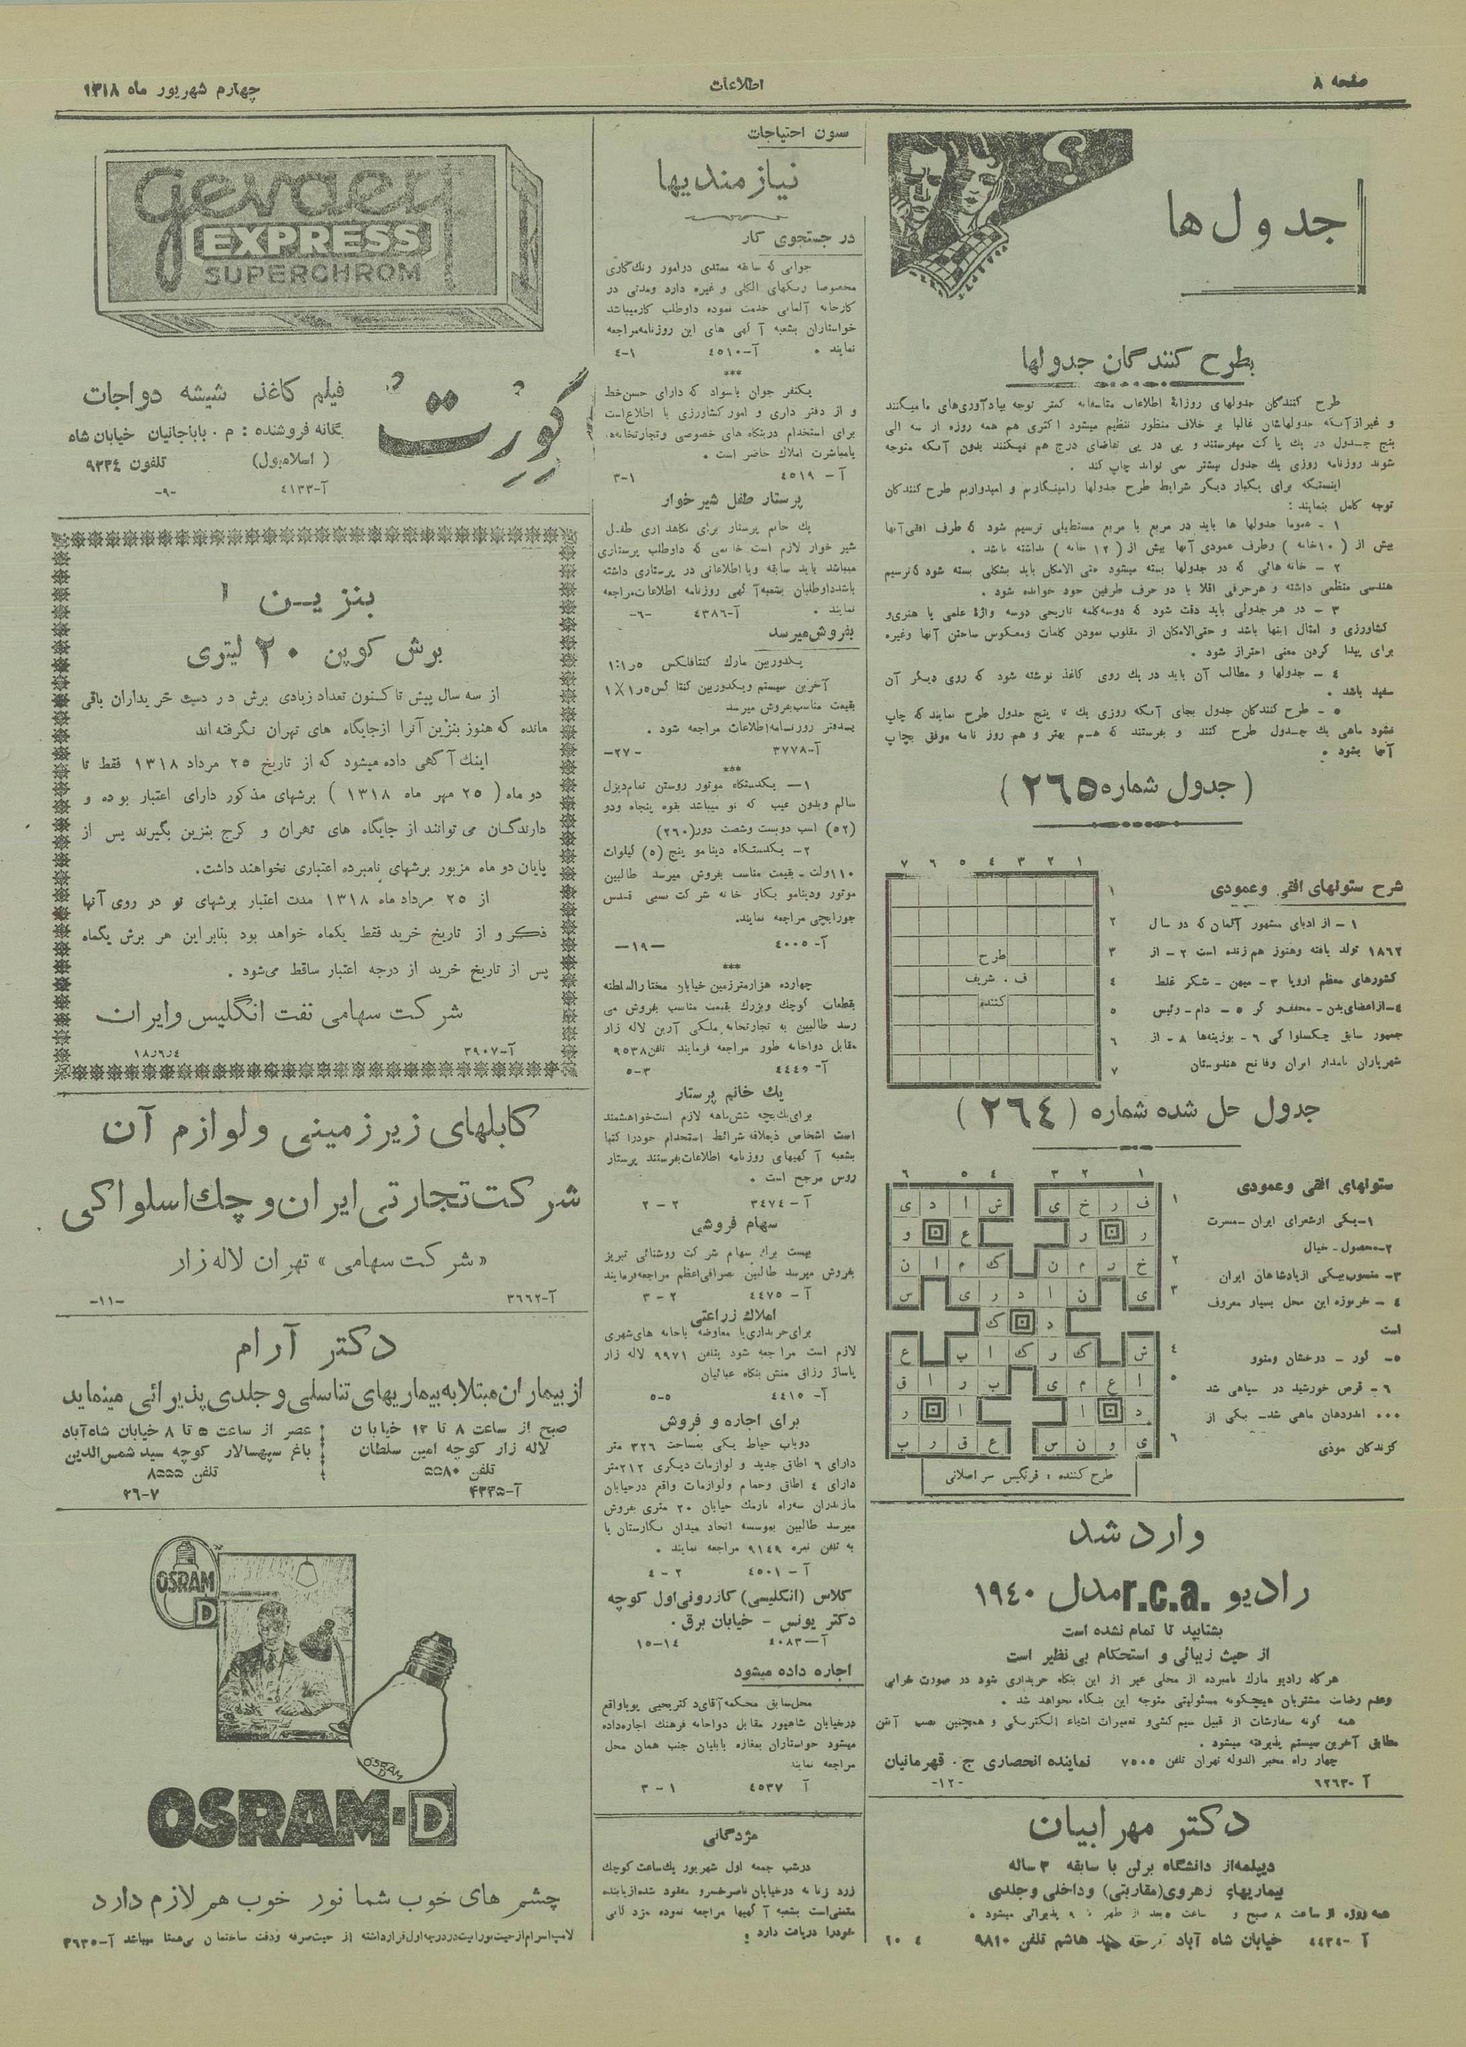 صفحه ۸
اطلاعات
چهارم شهریور ماه ۱۳۱۸
جدول ها
بطرح کنندگان جدولها
طرح کنندگان جدولهای روزانهٔ اطلاعات متأسفانه کمتر توجه بیادآوری‌های ما میکنند
و غیر از آنکه جدولهاشان غالبا بر خلاف منظور تنظیم میشود اکثری هم همه روزه از سه الی
پنج جدول در یك پاکت میفرستند و پی در پی تقاضای درج هم میکنند بدون آنکه متوجه
شوند روزنامه روزی یك جدول بیشتر نمی تواند چاپ کند .
اینستکه برای یکبار دیگر شرایط طرح جدولها را مینگاریم و امیدواریم طرح کنندگان
توجه کامل بنمایند :
۱ - عموما جدولها ها باید در مربع یا مربع مستطیلی ترسیم شود که طرف افقی آنها
بیش از ( ۱۰ خانه ) وطرف عمودی آنها بیش از ( ۱۲ خانه ) نداشته باشد .
۲ - خانه هائی که در جدولها بسته میشود حتی الامکان باید بشکلی بسته شود که ترسیم
هندسی منظمی داشته و هر حرفی اقلا با دو حرف طرفین خود خوانده شود .
۳ - در هر جدولی باید دقت شود که دوسه کلمه تاریخی دوسه واژهٔ علمی یا هنری و
کشاورزی و امثال اینها باشد و حتی‌الامکان از مقلوب نمودن کلمات ومعکوس ساختن آنها وغیره
برای پیدا کردن معنی احتراز شود .
٤ - جدولها و مطالب آن باید در یك روی کاغذ نوشته شود که روی دیگر آن
سفید باشد .
٥ - طرح کنندگان جدول بجای آنکه روزی یك تا پنج جدول طرح نمایند که چاپ
نشود ماهی یك جدول طرح کنند و بفرستند که هم بهتر و هم روز نامه موفق بچاپ
آنها بشود .
( جدول شماره ۲٦٥ )
۱ ۲ ۳ ٤ ٥ ٦ ۷
شرح ستونهای افقی وعمودی
۱ - از ادبای مشهور آلمان که در سال
۱۸٦۲ تولد یافته وهنوز هم زنده است ۲ - از
کشورهای معظم اروپا ۳ - میهن - شکر غلط
٤ - از اعضای بدن - مخفف گر ٥ - دام - رئیس
جمهور سابق چکسلواکی ٦ - بوزینه‌ها ۸ - از
شهریاران نامدار ایران وفاتح هندوستان
۱
۲
۳
٤
٥
٦
۷
طرح
ف . شریف
کننده
جدول حل شده شماره ( ۲٦٤ )
ستونهای افقی وعمودی
۱ - یکی ازشعرای ایران - مسرت
۲ - محصول - خیال
۳ - منسوب بیکی از پادشاهان ایران
٤ - خربوزه این محل بسیار معروف
است
٥ - کور - درخشان ومنور
٦ - قرص خورشید در سیاهی شد
۰۰۰ اندردهان ماهی شد - یکی از
گزندگان موذی
۱ ۲ ۳ ٤ ٥ ٦
ف ر خ ی ش ا د ی
ر ر ع و
خ ر م ن ک م ا ن
ی ن ا د ر ی س
د ک
ش ک ر ک ا ب ع
ا ع م ی ب ر ا ق
د ا ا ر
ی و ن س ع ق ر ب
طرح کننده : فرنگیس سر اصلانی
وارد شد
رادیو r.c.a. مدل ۱۹٤۰
بشتابید تا تمام نشده است
از حیث زیبائی و استحکام بی نظیر است
هرگاه رادیو مارك نامبرده از محلی غیر از این بنگاه خریداری شود در صورت خرابی
وعدم رضایت مشتریان هیچگونه مسئولیتی متوجه این بنگاه نخواهد شد .
همه گونه سفارشات از قبیل سیم کشی و تعمیرات اشیاء الکتریکی و همچنین نصب آنتن
مطابق آخرین سیستم پذیرفته میشود .
چهار راه مخبر الدوله تهران تلفن ۷۵۰۵ نماینده انحصاری ج . قهرمانیان
آ ۶۲۶۳۰ -۱۲-
دکتر مهرابیان
دیپلمه از دانشگاه برلن با سابقه ۳ ساله
بیماریهای زهروی (مقاربتی) وداخلی وجلدی
همه روزه از ساعت ۸ صبح و ساعت ۵ بعد از ظهر تا ۹ پذیرائی میشود .
آ - ٤٤٣٤ خیابان شاه آباد سید هاشم تلفن ۹۸۱۰
ستون احتیاجات
نیازمندیها
در جستجوی کار
جوانی که سابقه ممتدی درامور رنگ‌کاری
مخصوصا رنگهای الکلی و غیره دارد ومدتی در
کارخانه آلمانی خدمت نموده داوطلب کارمیباشد
خواستاران بشعبه آگهی های این روزنامه مراجعه
نمایند . آ-٤٥١٠ ٤-١
***
یکنفر جوان باسواد که دارای حسن خط
و از دفتر داری و امور کشاورزی با اطلاع است
برای استخدام دربنگاه های خصوصی وتجارتخانه،
یامباشرت املاك حاضر است .
آ - ٤٥١٩ ٣-١
پرستار طفل شیر خوار
یك خانم پرستار برای نگاهداری طفل
شیر خوار لازم است خانمی که داوطلب پرستاری
میباشد باید سابقه ویا اطلاعاتی در پرستاری داشته
باشد داوطلبان بشعبه آگهی روزنامه اطلاعات مراجعه
نمایند . آ-٤٣٨٦ -٦-
بفروش میرسد
یکدوربین مارك کنتافلکس ۱:۱ر۵
آخرین سیستم ویکدوربین کنتاکس ۱X۱ر۵
بقیمت مناسب بفروش میرسد
بدفتر روزنامه اطلاعات مراجعه شود .
آ-٣٧٧٨ -٢٧-
***
۱ - یکدستگاه موتور روستن تمام دیزل
سالم وبدون عیب که نو میباشد بقوه پنجاه ودو
(۵۲) اسب دویست وشصت دور (۲۶۰)
۲ - یکدستگاه دینامو پنج (۵) کیلوات
۱۱۰ ولت - بقیمت مناسب بفروش میرسد طالبین
موتور ودینامو بکارخانه شرکت نسبی قدس
جورابچی مراجعه نمایند.
آ- ٤٠٠٥ -١٩-
***
چهارده هزار متر زمین خیابان مختار السلطنه
بقطعات کوچك وبزرك بقیمت مناسب بفروش می
رسد طالبین به تجارتخانه ملکی آرین لاله زار
مقابل دواخانه طور مراجعه فرمایند تلفن ۹۵۳۸
آ- ٤٤٤٩ ٥-٣
یك خانم پرستار
برای یك بچه شش ماهه لازم است خواهشمند
است اشخاص ذیعلاقه شرائط استخدام خودرا کتبا
بشعبه آگهیهای روزنامه اطلاعات بفرستند پرستار
روس مرجح است .
آ- ٣٤٧٤ ٢-٢
سهام فروشی
بیست برابر سهام شرکت روشنائی تبریز
بفروش میرسد طالبین بصرافی اعظم مراجعه فرمایند
آ- ٤٤٧٥ ٣-٢
املاك زراعتی
برای خریداری یا معاوضه باخانه های شهری
لازم است مراجعه شود بتلفن ۹۹۷۱ لاله زار
پاساژ رزاق منش بنگاه عبائیان
آ- ٤٤١٥ ٥-٥
برای اجاره و فروش
دوباب حیاط یکی بمساحت ۳۲۶ متر
دارای ۶ اطاق جدید و لوازمات دیگری ۲۱۲ متر
دارای ٤ اطاق وحمام ولوازمات واقع درخیابان
مازندران سه‌راه نارمك خیابان ۲۰ متری بفروش
میرسد طالبین بموسسه اتحاد میدان بهارستان یا
به تلفن نمره ۹۱٤۹ مراجعه نمایند .
آ- ٤٥٠١ ٤-٢
کلاس (انگلیسی) کازرونی اول کوچه
دکتر یونس - خیابان برق .
آ- ٤٠٨٣ ١٥-١٤
اجاره داده میشود
محل سابق محکمه آقای دکتر یحیی پویا واقع
درخیابان شاهپور مقابل دواخانه فرهنك اجاره داده
میشود خواستاران بمغازه بابلیان جنب همان محل
مراجعه نمایند
آ ٤٥٣٧ ٣-١
مژدگانی
درشب جمعه اول شهریور یك ساعت کوچك
زرد زنانه درخیابان ناصرخسرو مفقود شده از یابنده
متمنی است بشعبه آگهیها مراجعه نموده مزد کافی
خودرا دریافت دارد .
gevaert
EXPRESS
SUPERCHROM
گورت
فیلم کاغذ شیشه دواجات
یگانه فروشنده : م . باباجانیان خیابان شاه
( اسلامبول) تلفون ۹۳۳٤
آ-٤١٣٣ -٩-
بنزین ۱
برش کوپن ۲۰ لیتری
از سه سال پیش تا کنون تعداد زیادی برش در دست خریداران باقی
مانده که هنوز بنزین آنرا ازجایگاه های تهران نگرفته اند
اینك آگهی داده میشود که از تاریخ ۲۵ مرداد ۱۳۱۸ فقط تا
دو ماه ( ۲۵ مهر ماه ۱۳۱۸ ) برشهای مذکور دارای اعتبار بوده و
دارندگان می توانند از جایگاه های تهران و کرج بنزین بگیرند پس از
پایان دو ماه مزبور برشهای نامبرده اعتباری نخواهند داشت .
از ۲۵ مرداد ماه ۱۳۱۸ مدت اعتبار برشهای نو در روی آنها
ذکر و از تاریخ خرید فقط یکماه خواهد بود بنابراین هر برش یکماه
پس از تاریخ خرید از درجه اعتبار ساقط می‌شود .
شرکت سهامی نفت انگلیس وایران
آ-٣٩٠٧ ٤ر٦ر١٨
کابلهای زیرزمینی ولوازم آن
شرکت تجارتی ایران و چك اسلواکی
« شرکت سهامی » تهران لاله زار
آ-٣٦٦٢ -١١-
دکتر آرام
از بیماران مبتلا به بیماریهای تناسلی و جلدی پذیرائی مینماید
صبح از ساعت ۸ تا ۱۲ خیابان
لاله زار کوچه امین سلطان
تلفن ۵۵۸۰
آ-٤٣٣٥
عصر از ساعت ۵ تا ۸ خیابان شاه‌آباد
باغ سپهسالار کوچه سید شمس‌الدین
تلفن ۸۵۵۵
٢٦-٧
OSRAM
D
OSRAM
D
OSRAM-D
چشم های خوب شما نور خوب هم لازم دارد
لامپ اسرام از حیث نورانیت در درجه اول قرار داشته از حیث صرفه ودقت ساختمان بی همتا میباشد آ-٣٦٣٥